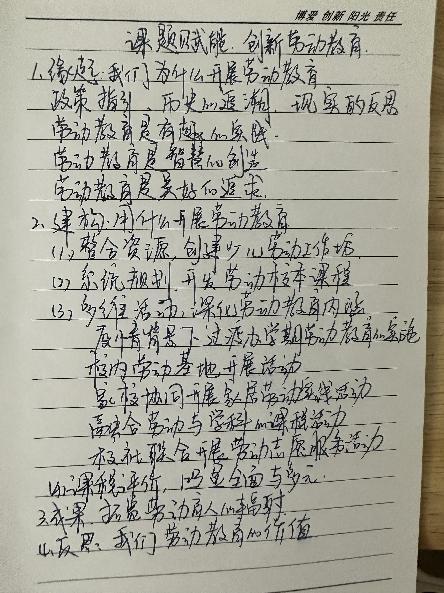 博爱 创新 阳光 责任
课题赋能 创新劳动教育
1、缘起：我们为什么开展劳动教育
政策指引、历史的追溯、现实的反思
劳动教育是有趣的实践
劳动教育是智慧的创造
劳动教育是美好的追求
2、建构：用什么开展劳动教育
(1) 整合资源，创建 劳动工作坊
(2) 系统规划，开发劳动校本课程
(3) 多维活动，深化劳动教育内涵
背景下过渡 学期劳动教育的实施
校内劳动基地开展活动
家校协同开展家居劳动实践活动
融合劳动与学科的课程活动
校社联合开展劳动志愿服务活动
(4) 课程评价，全面与多元
3、成果：拓宽劳动育人的辐射
4、反思：我们劳动教育的价值